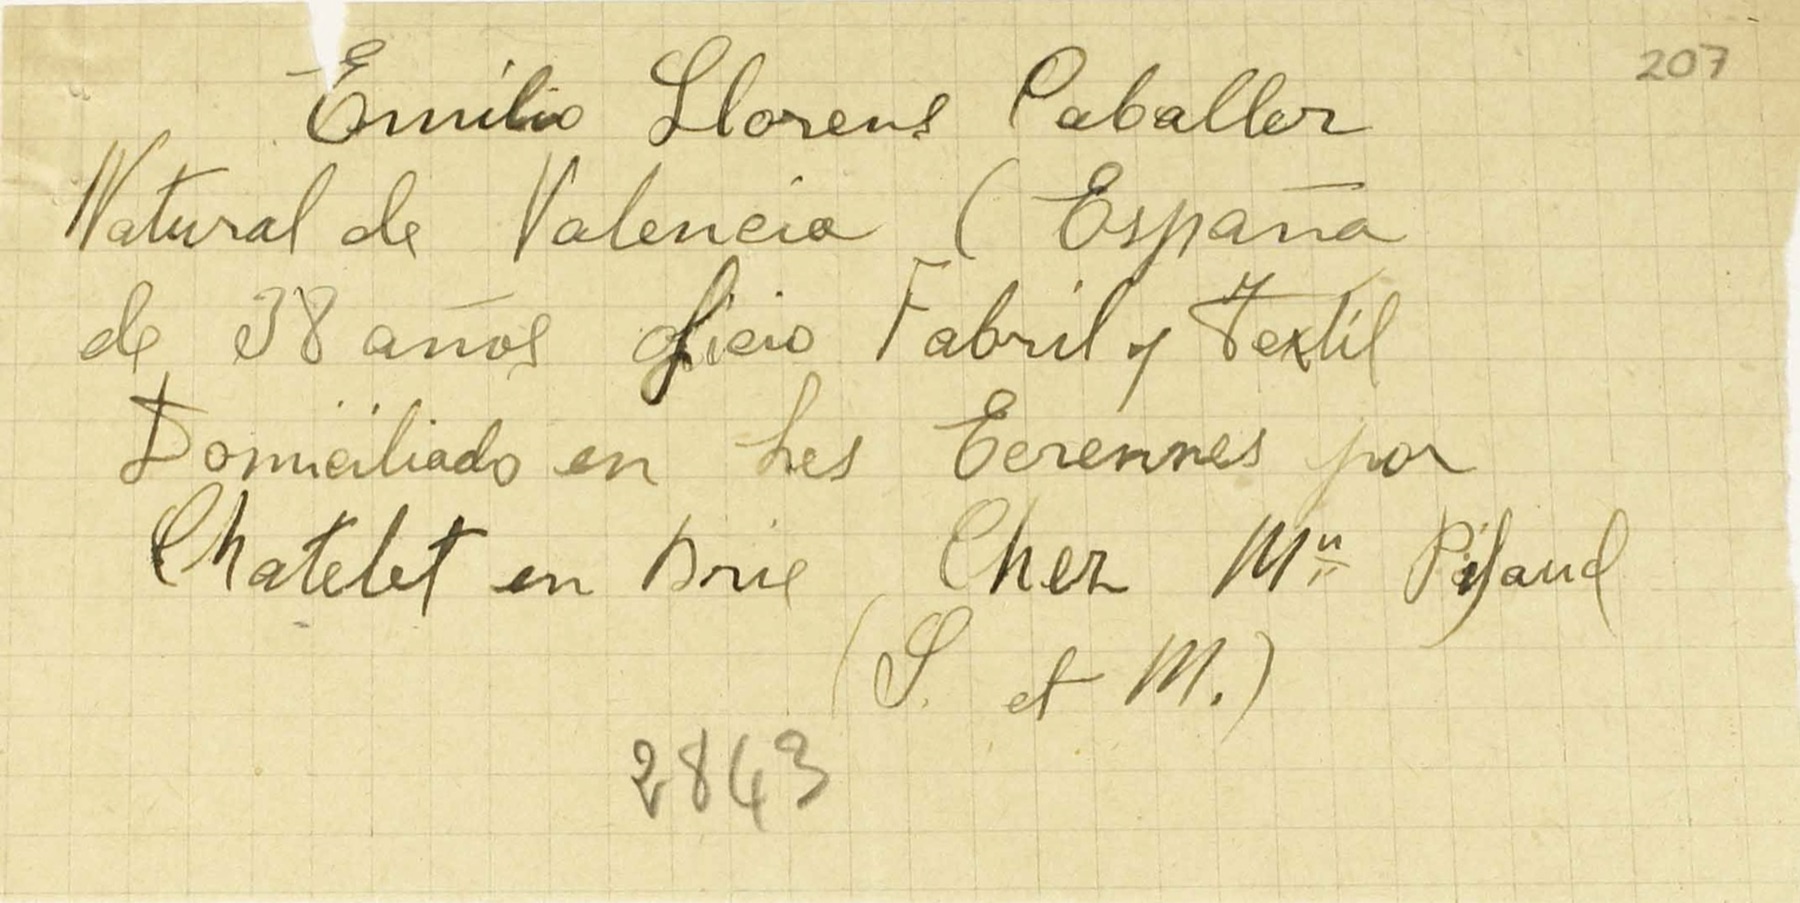 207
Emilio Llorens Caballer
Natural de Valencia ( España
de 38 años oficio Fabril y Textil
Domiciliado en Les Ecrennes por
Chatelet en Brie Chez Mr
(S. et M.)
2843